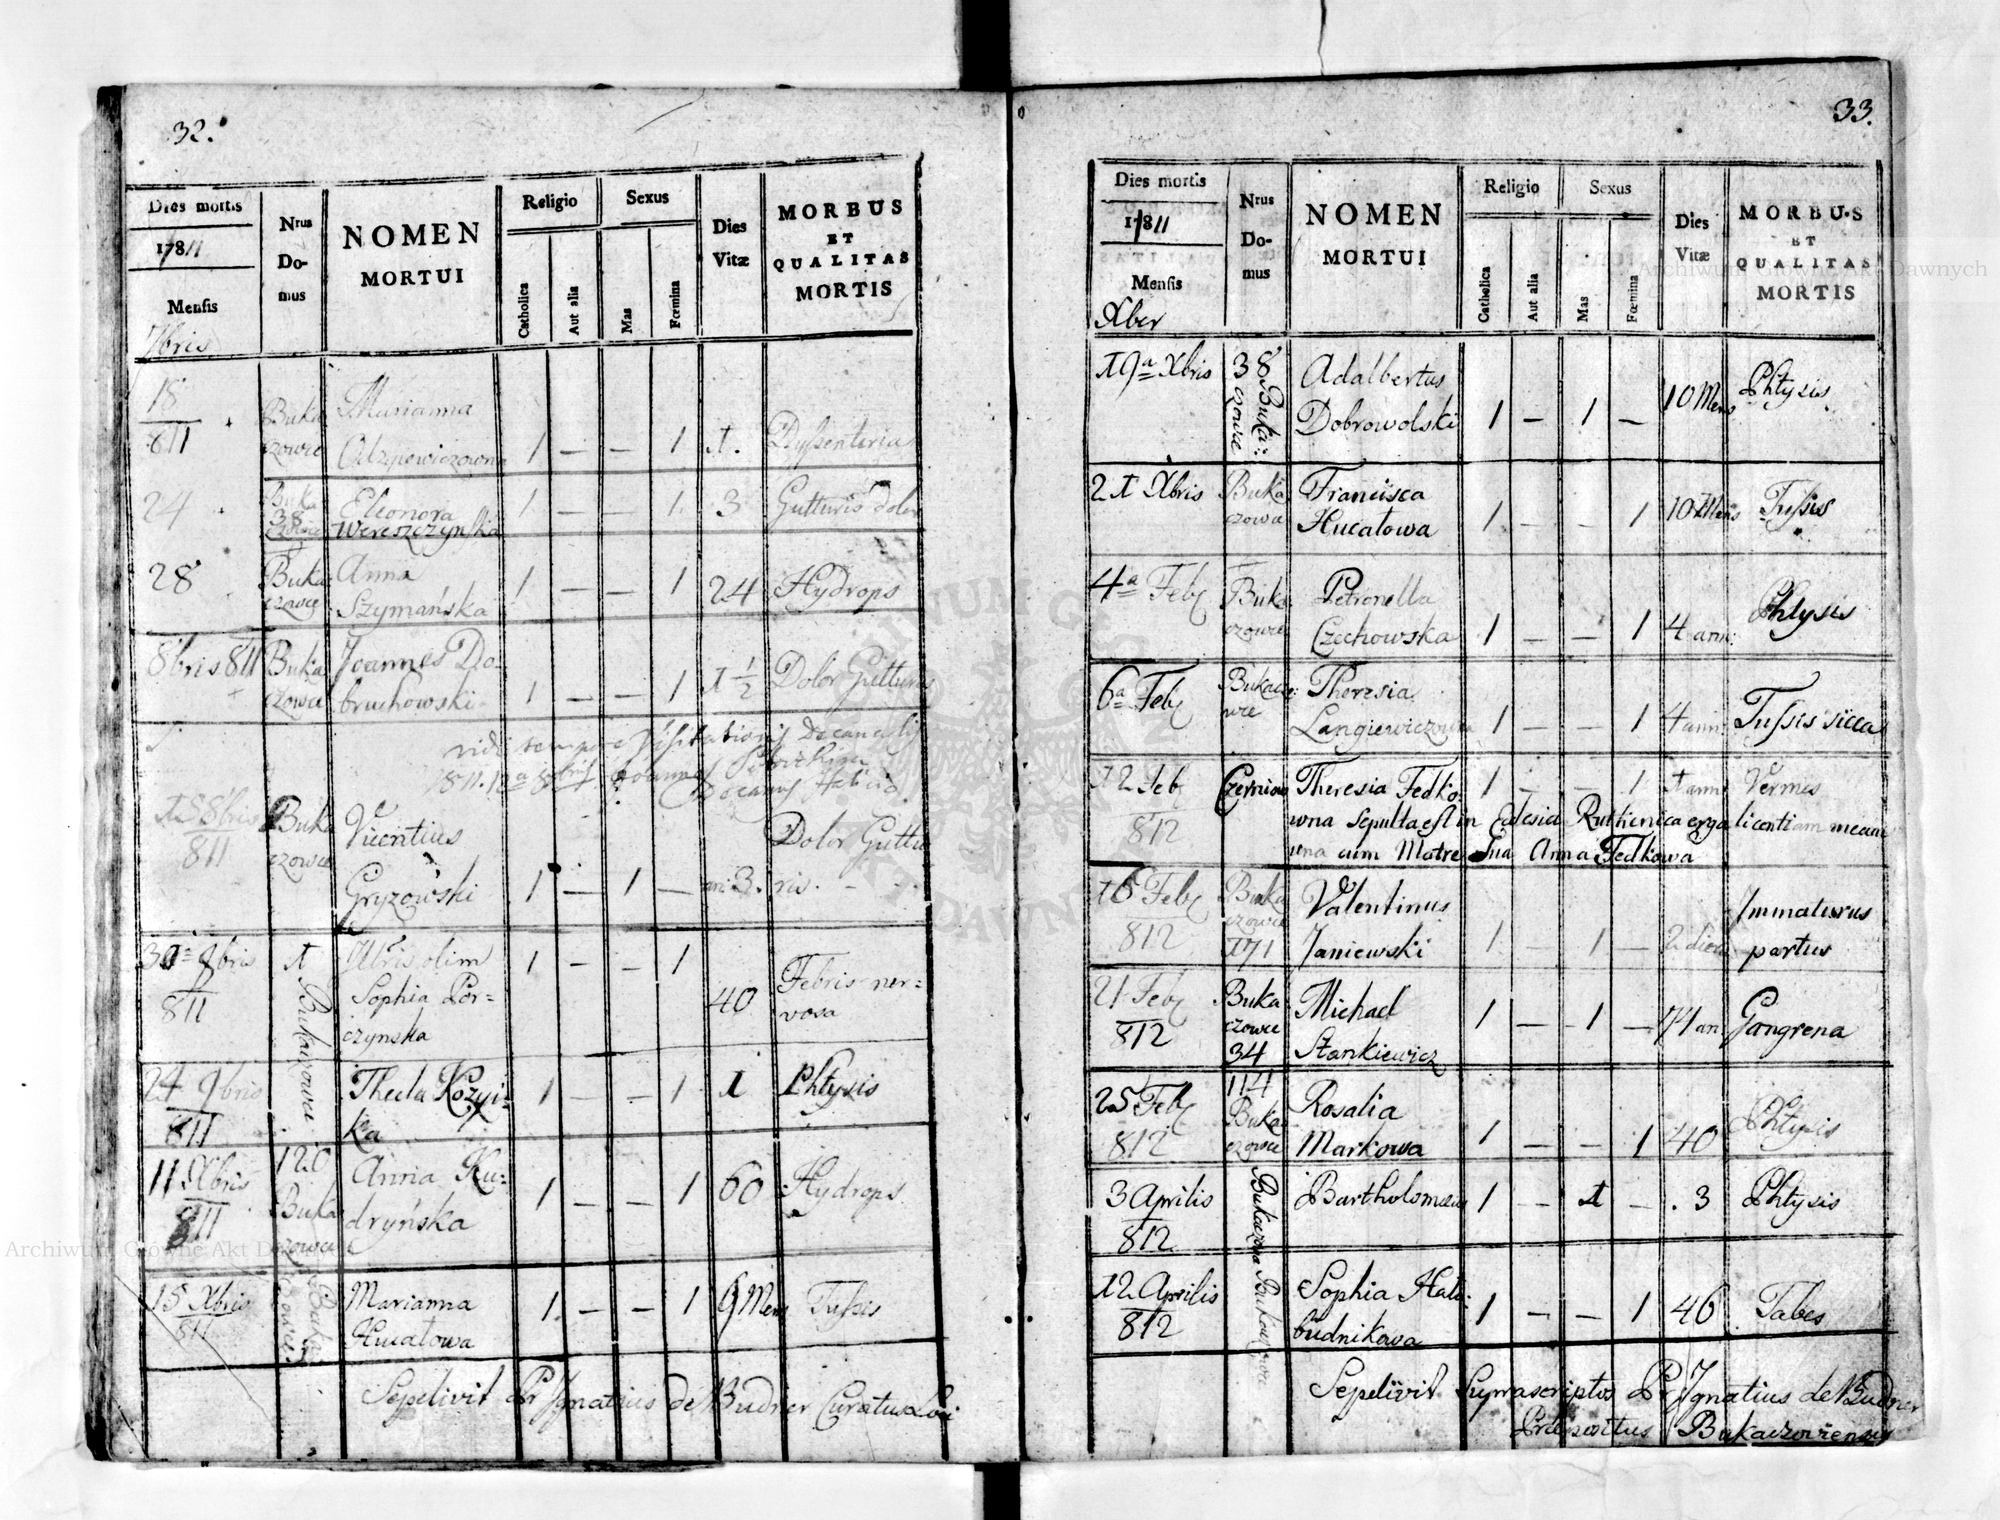 32.
Dies mortis
1811
Mensis
7bris
Nrus Domus
NOMEN
MORTUI
Religio
Catholica
Aut alia
Sexus
Mas
Fœmina
Dies
Vitæ
MORBUS
ET
QUALITAS
MORTIS
18 Buka Marianna
811 czowce 1 — — 1 1. Dyssenteria
24 Buka 38 czowce Eleonora 1 — — 1 3 Gutturis dolor
Wereszczynska
28 Buka Anna 1 — — 1 24 Hydrops
czowce Szymańska
8bris 811 Buka Joannes Do-
czowce bruchowski 1 — — 1 1 1/2 Dolor Gutturis
vidi tempore Visitationis Decanalis
1811. 12a 8bris Joannes
Decanus Halicio
8bris Buka Vicentius Dolor Guttu
811 czowce
Gryzowski 1 — 1 — 3. ris.
30 9bris 1 Ybris olim 1 — — 1
811 Bukaczowce Sophia Por= 40 Febris ner=
czynska vosa
24 9bris Thecla Kozyi= 1 — — 1 1 Phtysis
811 ka
11 Xbris 120 Anna Ku= 1 — — 1 60 Hydrops
811 Buka dryńska
czowce
15 Xbris Marianna 1 — — 1 9 Mens Tussis
811 Hucatowa
Sepelivit Pr Ignatius de Budner Curatus Loci
33.
Dies mortis
1811
Mensis
Xber
Nrus Domus
NOMEN
MORTUI
Religio
Catholica
Aut alia
Sexus
Mas
Fœmina
Dies
Vitæ
MORBUS
ET
QUALITAS
MORTIS
19a Xbris 38 Buka: Adalbertus 10 Mens Phtysis
czowce Dobrowolski 1 — 1 —
21 Xbris Buka Francisca 10 Mens Tussis
czowa Hucatowa 1 — — 1
4a Feb Buka Petronella Phtysis
czowce Czechowska 1 — — 1 4 ann:
6a Feb Bukaczo Theresia
wce Langiewiczowna 1 — — 1 4 ann Tussis sicca
12 Feb Czerniow Theresia Fedko= 1 — — 1 1 ann Vermes
812 wna sepulta est in Eclesia Ruthenica erga licentiam meam
una cum Matre Sua Anna Fedkowa
16 Feb Buka Valentinus Immaturus
812 czowce 171 Janiewski 1 — 1 — 2 dier partus
21 Feb Buka Michael 1 — 1 — 74 an Gangrena
812 czowce 34 Stankiewicz
25 Feb 114 Rosalia Phtysis
812 Buka czowce Markowa 1 — — 1 40
3 Aprilis Bukaczowce Bartholomeus 1 — 1 — . 3 Phtysis
812
12 Aprilis Bukaczowce Sophia Hala: 1 — — 1 46 Tabes
812 budnikowa
Sepelivit Suprascriptos Pr Ignatius de Budner
Praepositus Bukaczoviensis